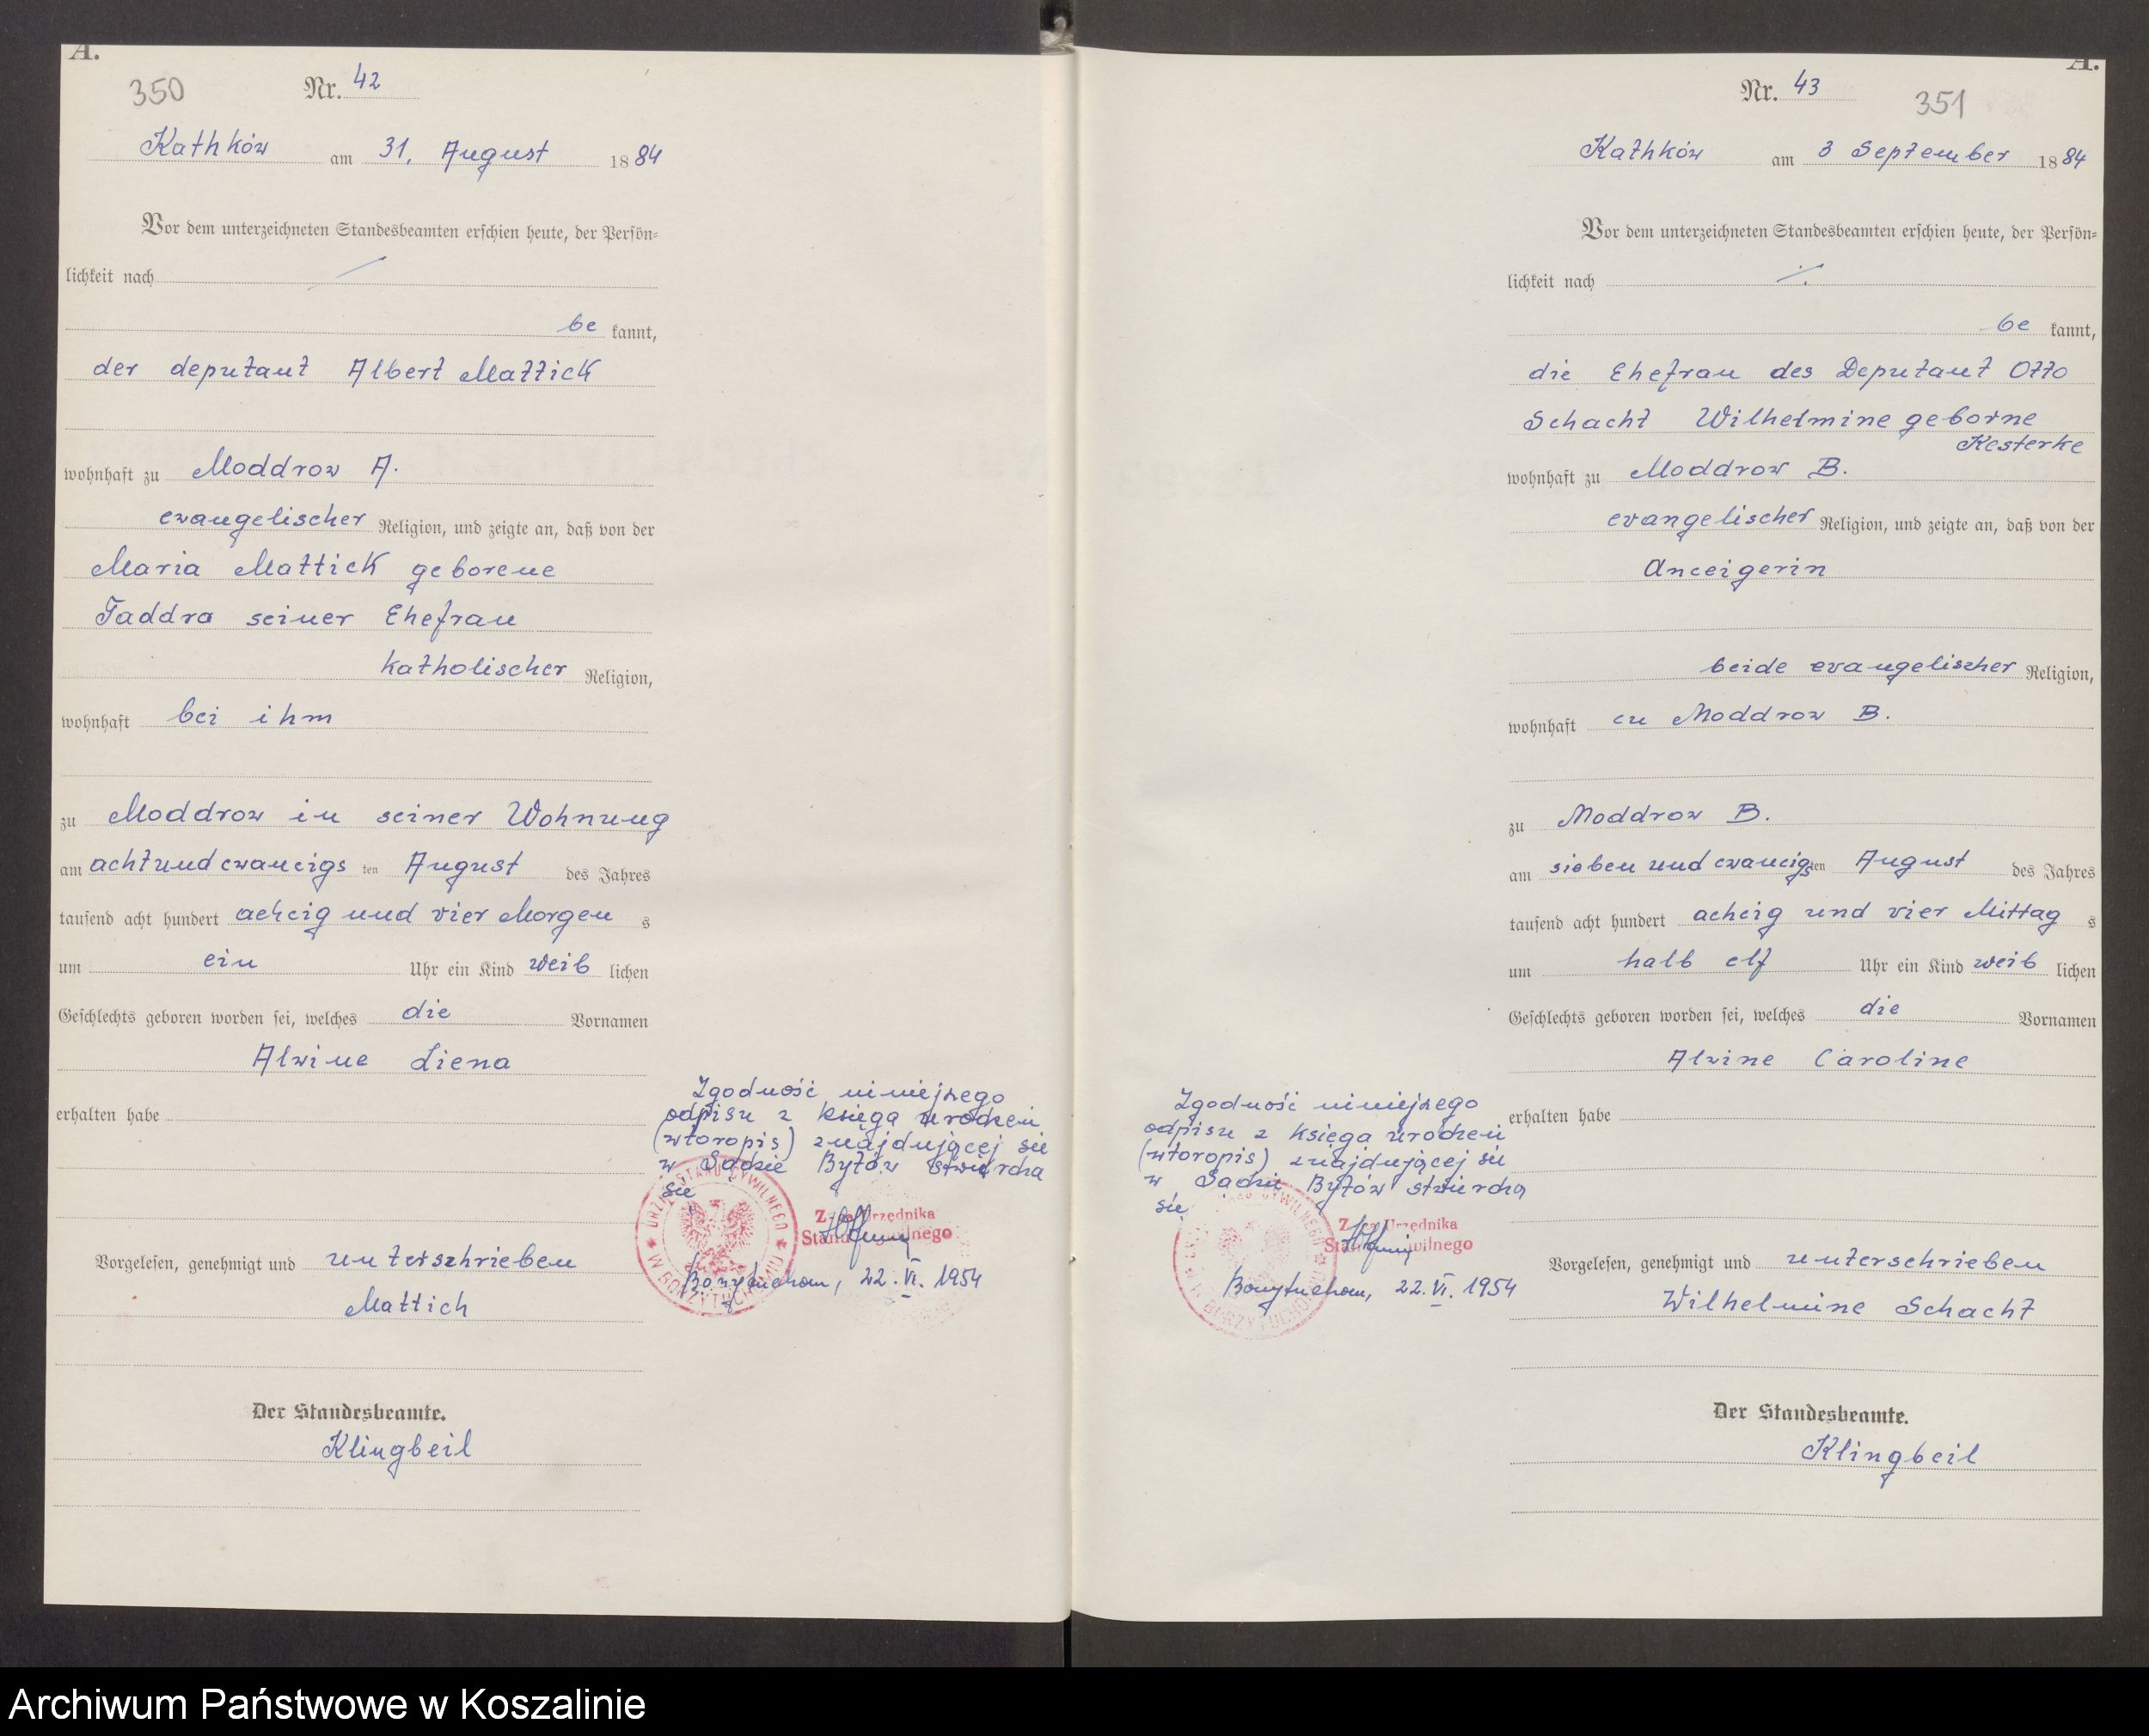 A.
350
Nr. 42
Kathków am 31. August 1884
Vor dem unterzeichneten Standesbeamten erschien heute, der Persön=
lichkeit nach
be kannt,
der deputant Albert Mattick
wohnhaft zu Moddrow A.
evangelischer Religion, und zeigte an, daß von der
Maria Mattick geborene
Taddra seiner Ehefrau
katholischer Religion,
wohnhaft bei ihm
zu Moddrow in seiner Wohnung
am achtundcwancigs ten August des Jahres
tausend acht hundert achcig und vier Morgen s
um ein Uhr ein Kind weib lichen
Geschlechts geboren worden sei, welches die Vornamen
Alwine Liena
erhalten habe
Zgodność niniejszego
odpisu z księgą urodzeń
(wtóropis) znajdującej się
w Sądzie Bytów stwierdza
się
URZĄD STANU CYWILNEGO W BORZYTUCHOMIU
Z-ca Urzędnika
Stanu Cywilnego
Borzytuchom, 22.VI.1954
Vorgelesen, genehmigt und unterschrieben
Mattich
Der Standesbeamte.
Klingbeil
A.
Nr. 43
351
Kathków am 3 September 1884
Vor dem unterzeichneten Standesbeamten erschien heute, der Persön=
lichkeit nach ./.
be kannt,
die Ehefrau des Deputant Otto
Schacht Wilhelmine geborne
Kesterke
wohnhaft zu Moddrow B.
evangelischer Religion, und zeigte an, daß von der
Anceigerin
beide evangelischer Religion,
wohnhaft cu Moddrow B.
zu Moddrow B.
am sieben und cwancigs ten August des Jahres
tausend acht hundert achcig und vier Mittag s
um halb elf Uhr ein Kind weib lichen
Geschlechts geboren worden sei, welches die Vornamen
Alwine Caroline
erhalten habe
Zgodność niniejszego
odpisu z księgą urodzeń
(wtóropis) znajdującej się
w Sądzie Bytów stwierdza
się
Z-ca Urzędnika
Stanu Cywilnego
Borzytuchom, 22.VI.1954
Vorgelesen, genehmigt und unterschrieben
Wilhelmine Schacht
Der Standesbeamte.
Klingbeil
Archiwum Państwowe w Koszalinie